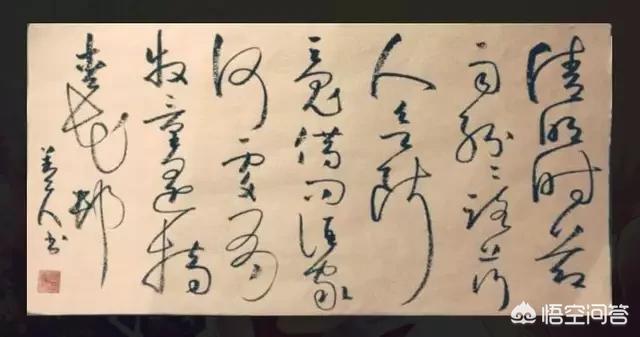 清明时节
雨纷纷路上行
人欲断
魂借问酒家
何处有
牧童遥指
杏花邨
人书
悟空问答